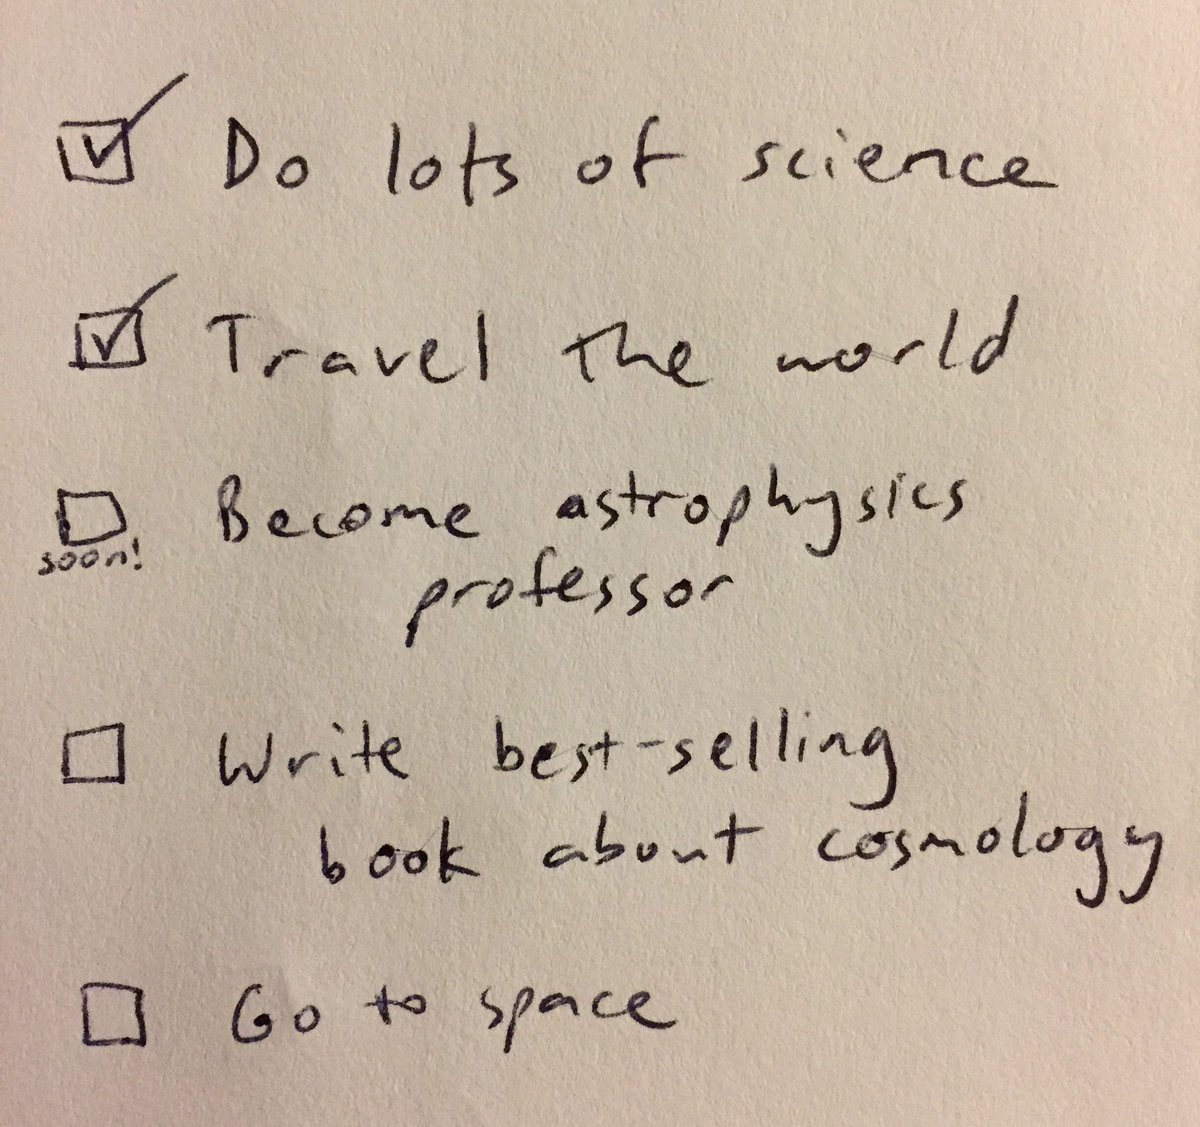 Do lots of science
Travel the world
Become astrophysics
soon!
professor
Write best-selling
book about cosmology
Go to space